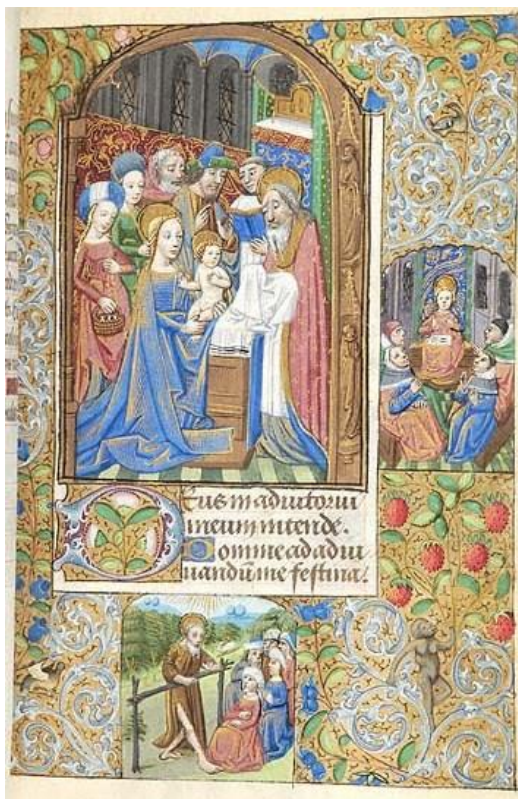 Deus in adiutoriū
meum intende.
Domine ad adiu
uandū me festina.